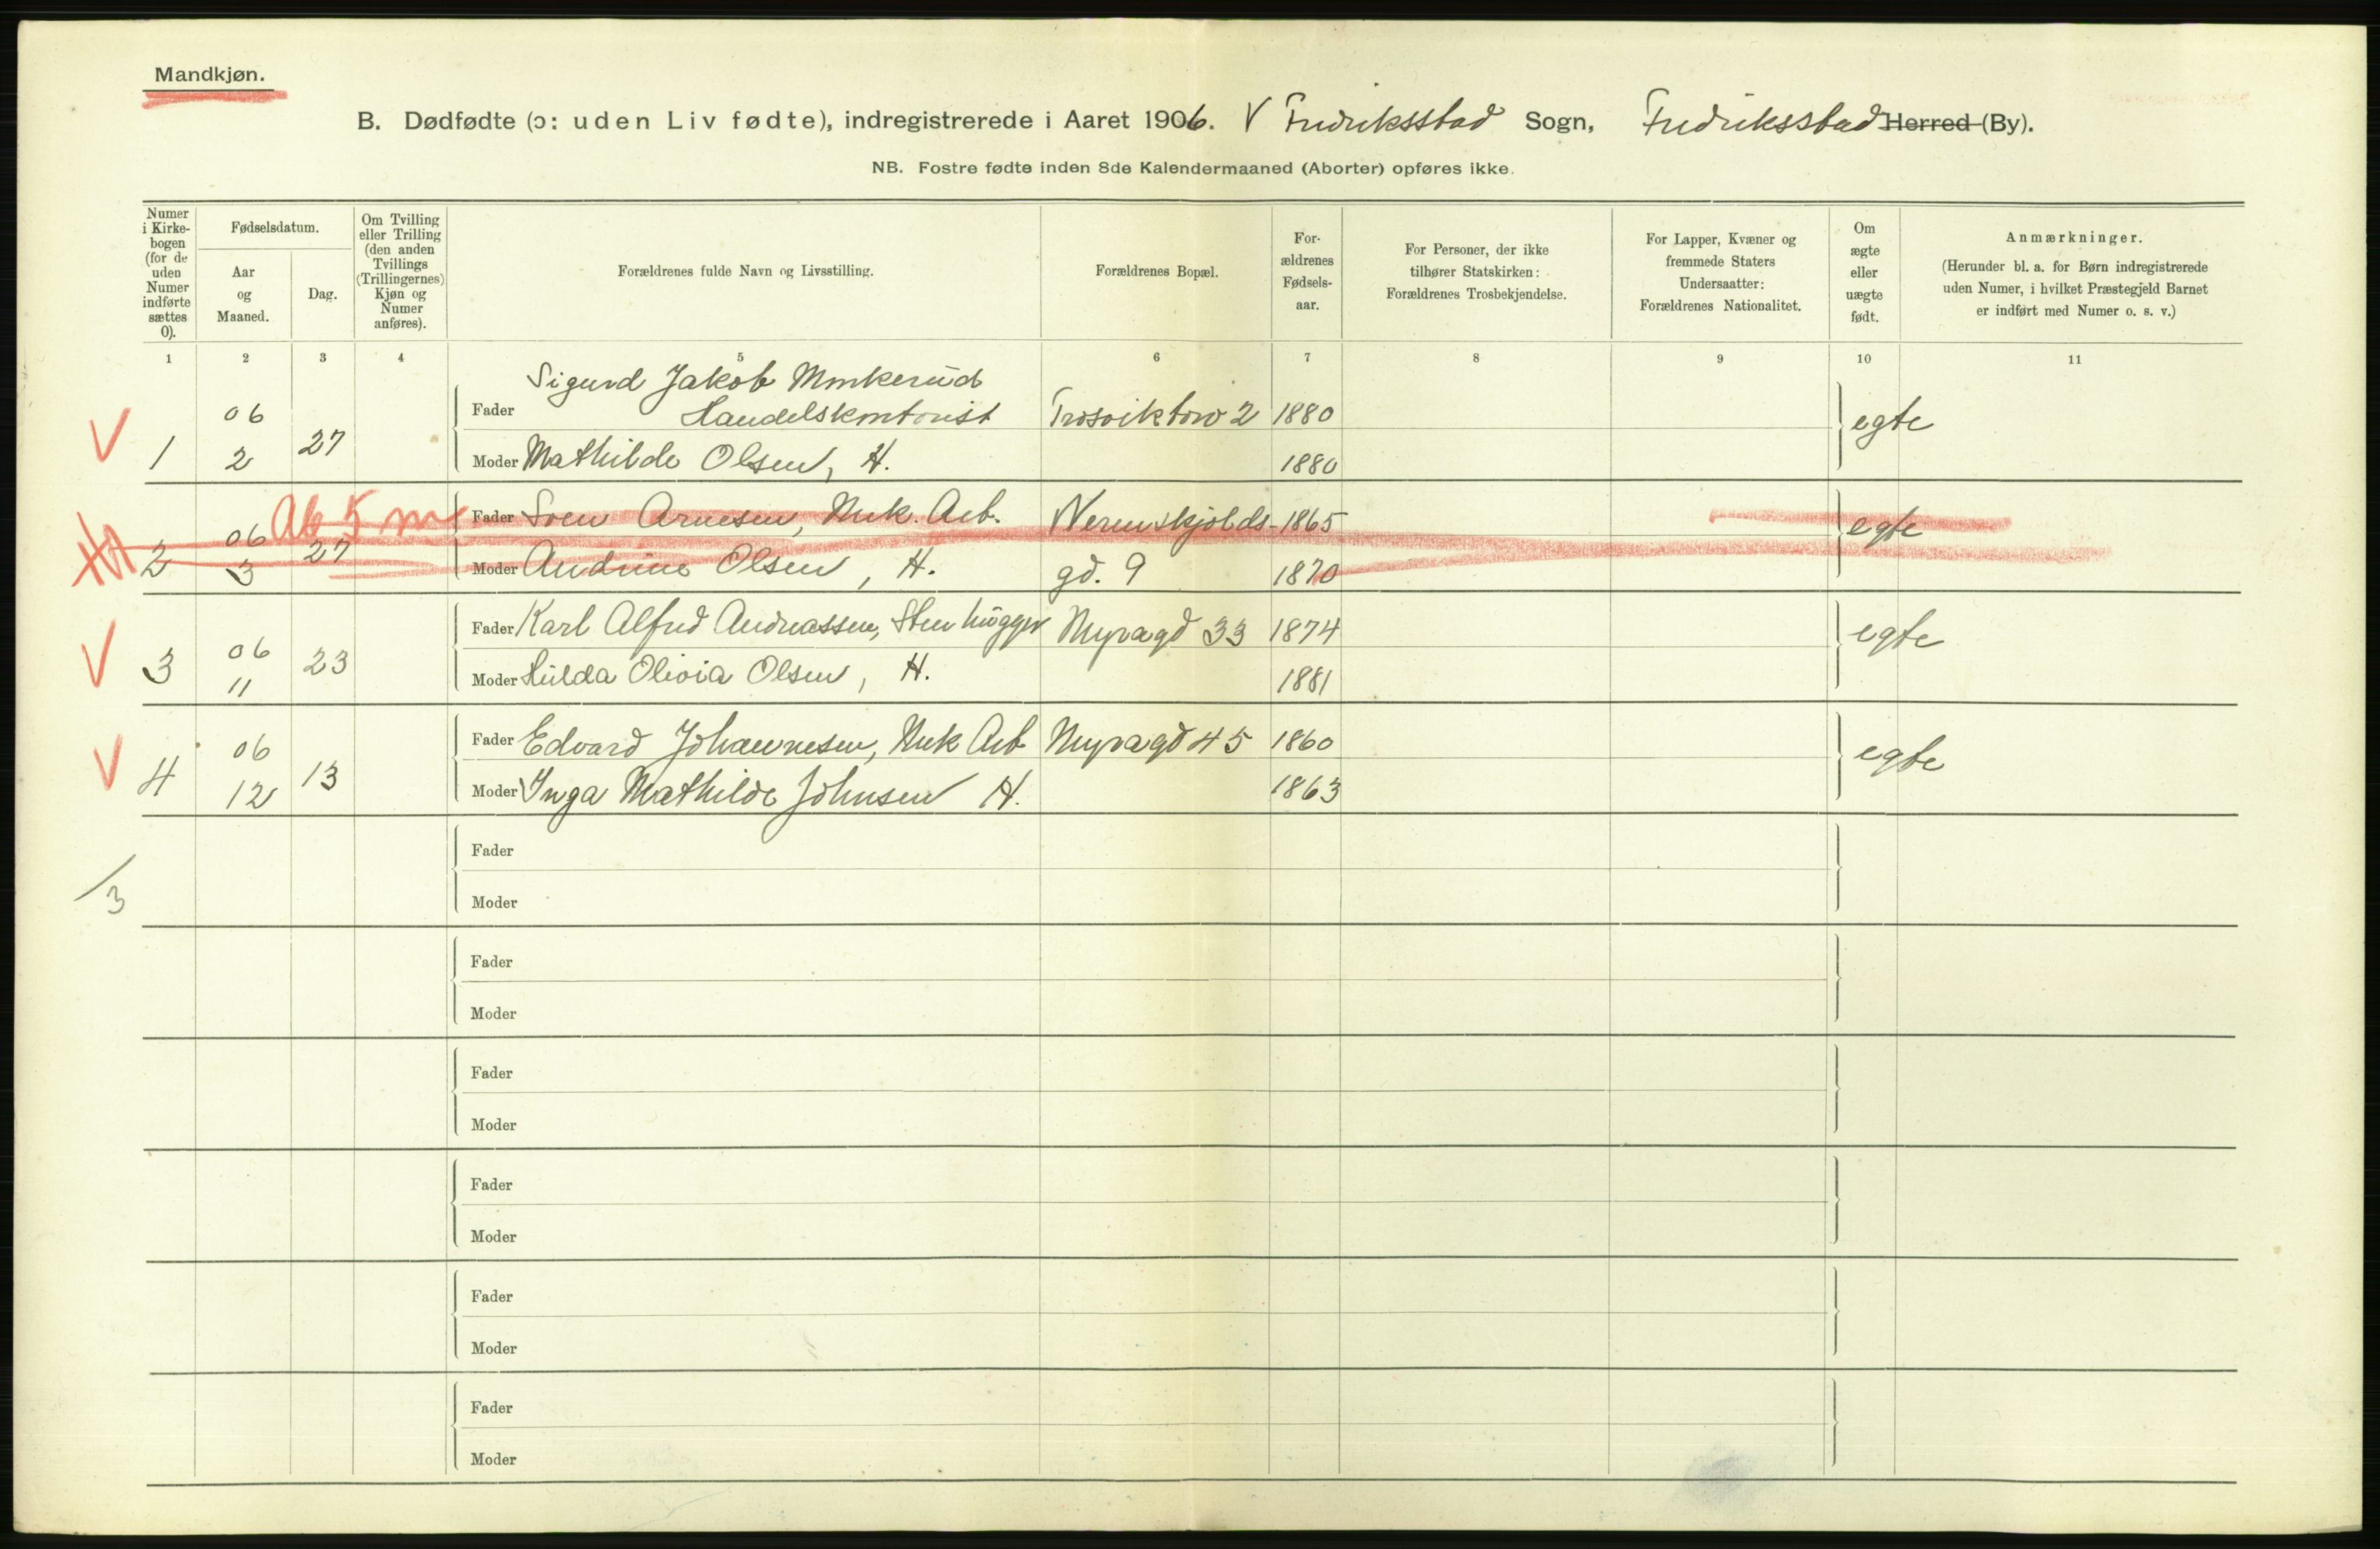 Mandkjøn.
B. Dødfødte (ɔ: uden Liv fødte), indregistrerede i Aaret 1906. V Fredriksstad Sogn, Fredriksstad Herred (By).
NB. Fostre fødte inden 8de Kalendermaaned (Aborter) opføres ikke.
Numer i Kirke-bogen (for de uden Numer indførte sættes 0).
Fødselsdatum.
Aar og Maaned.
Dag.
Om Tvilling eller Trilling (den anden Tvillings (Trillingernes) Kjøn og Numer anføres).
Forældrenes fulde Navn og Livsstilling.
Forældrenes Bopæl.
For-ældrenes Fødsels-aar.
For Personer, der ikke tilhører Statskirken: Forældrenes Trosbekjendelse.
For Lapper, Kvæner og fremmede Staters Undersaatter: Forældrenes Nationalitet.
Om ægte eller uægte født.
Anmærkninger.
(Herunder bl. a. for Børn indregistrerede uden Numer, i hvilket Præstegjeld Barnet er indført med Numer o. s. v.)
1 2 3 4 5 6 7 8 9 10 11
Sigurd Jakob Monkerud
V 1 06 2 27 Fader Handelskontorist Trosviktorv 2 1880 egte
Moder Mathilde Olsen, H. 1880
2 06 3 27 Ab 5 m Fader Sven Arnesen, Mek. Arb. Werenskjolds- 1865 egte
Moder Andrine Olsen, H. gd. 9 1870
V 3 06 11 23 Fader Karl Alfred Andreassen, Stenhugger Myragd 33 1874 egte
Moder Hulda Olivia Olsen, H. 1881
V 4 06 12 13 Fader Edvard Johannesen, Mek Arb Myragd 45 1860 egte
Moder Inga Mathilde Johnsen H. 1863
Fader
Moder
/3
Fader
Moder
Fader
Moder
Fader
Moder
Fader
Moder
Fader
Moder